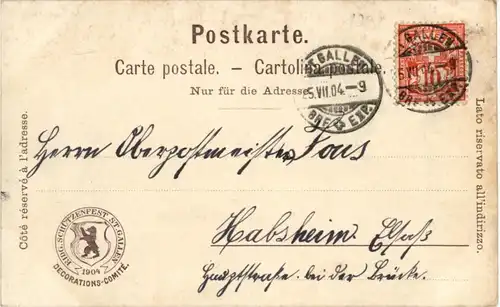 Postkarte.
Carte postale. – Cartolina postale.
Nur für die Adresse.
ST. GALLEN
25.VII.04.–9
BRF. EXP.
GALLEN
5.VII.04.–9
BRF. EXP.
Côté réservé à l'adresse.
Lato riservato all'indirizzo.
Herrn Oberpostmeister
Habsheim. Elsaß
Hauptstraße bei der Brücke.
EIDG. SCHÜTZENFEST ST. GALLEN
1904
DECORATIONS-COMITÉ.